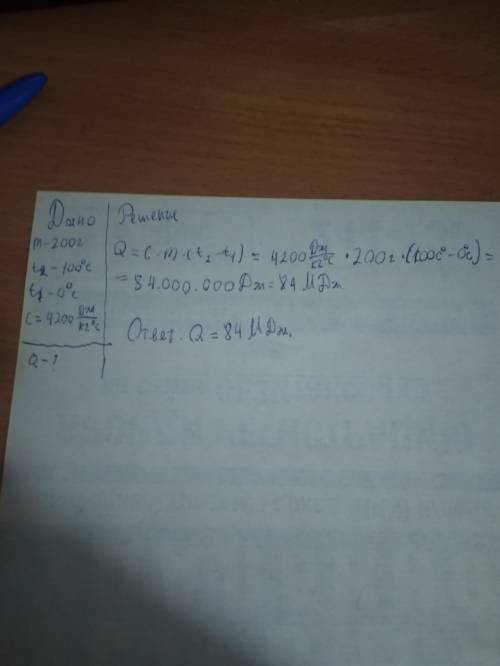 Дано
m-200г
t2-100°с
t1-0°с
C=4200 Дж/кг°с
Q-?
Решение
Q=C·m·(t2-t1)=4200 Дж/кг°с·200г·(100с°-0°с)=
=84.000.000Дж=84МДж
Ответ. Q=84МДж.